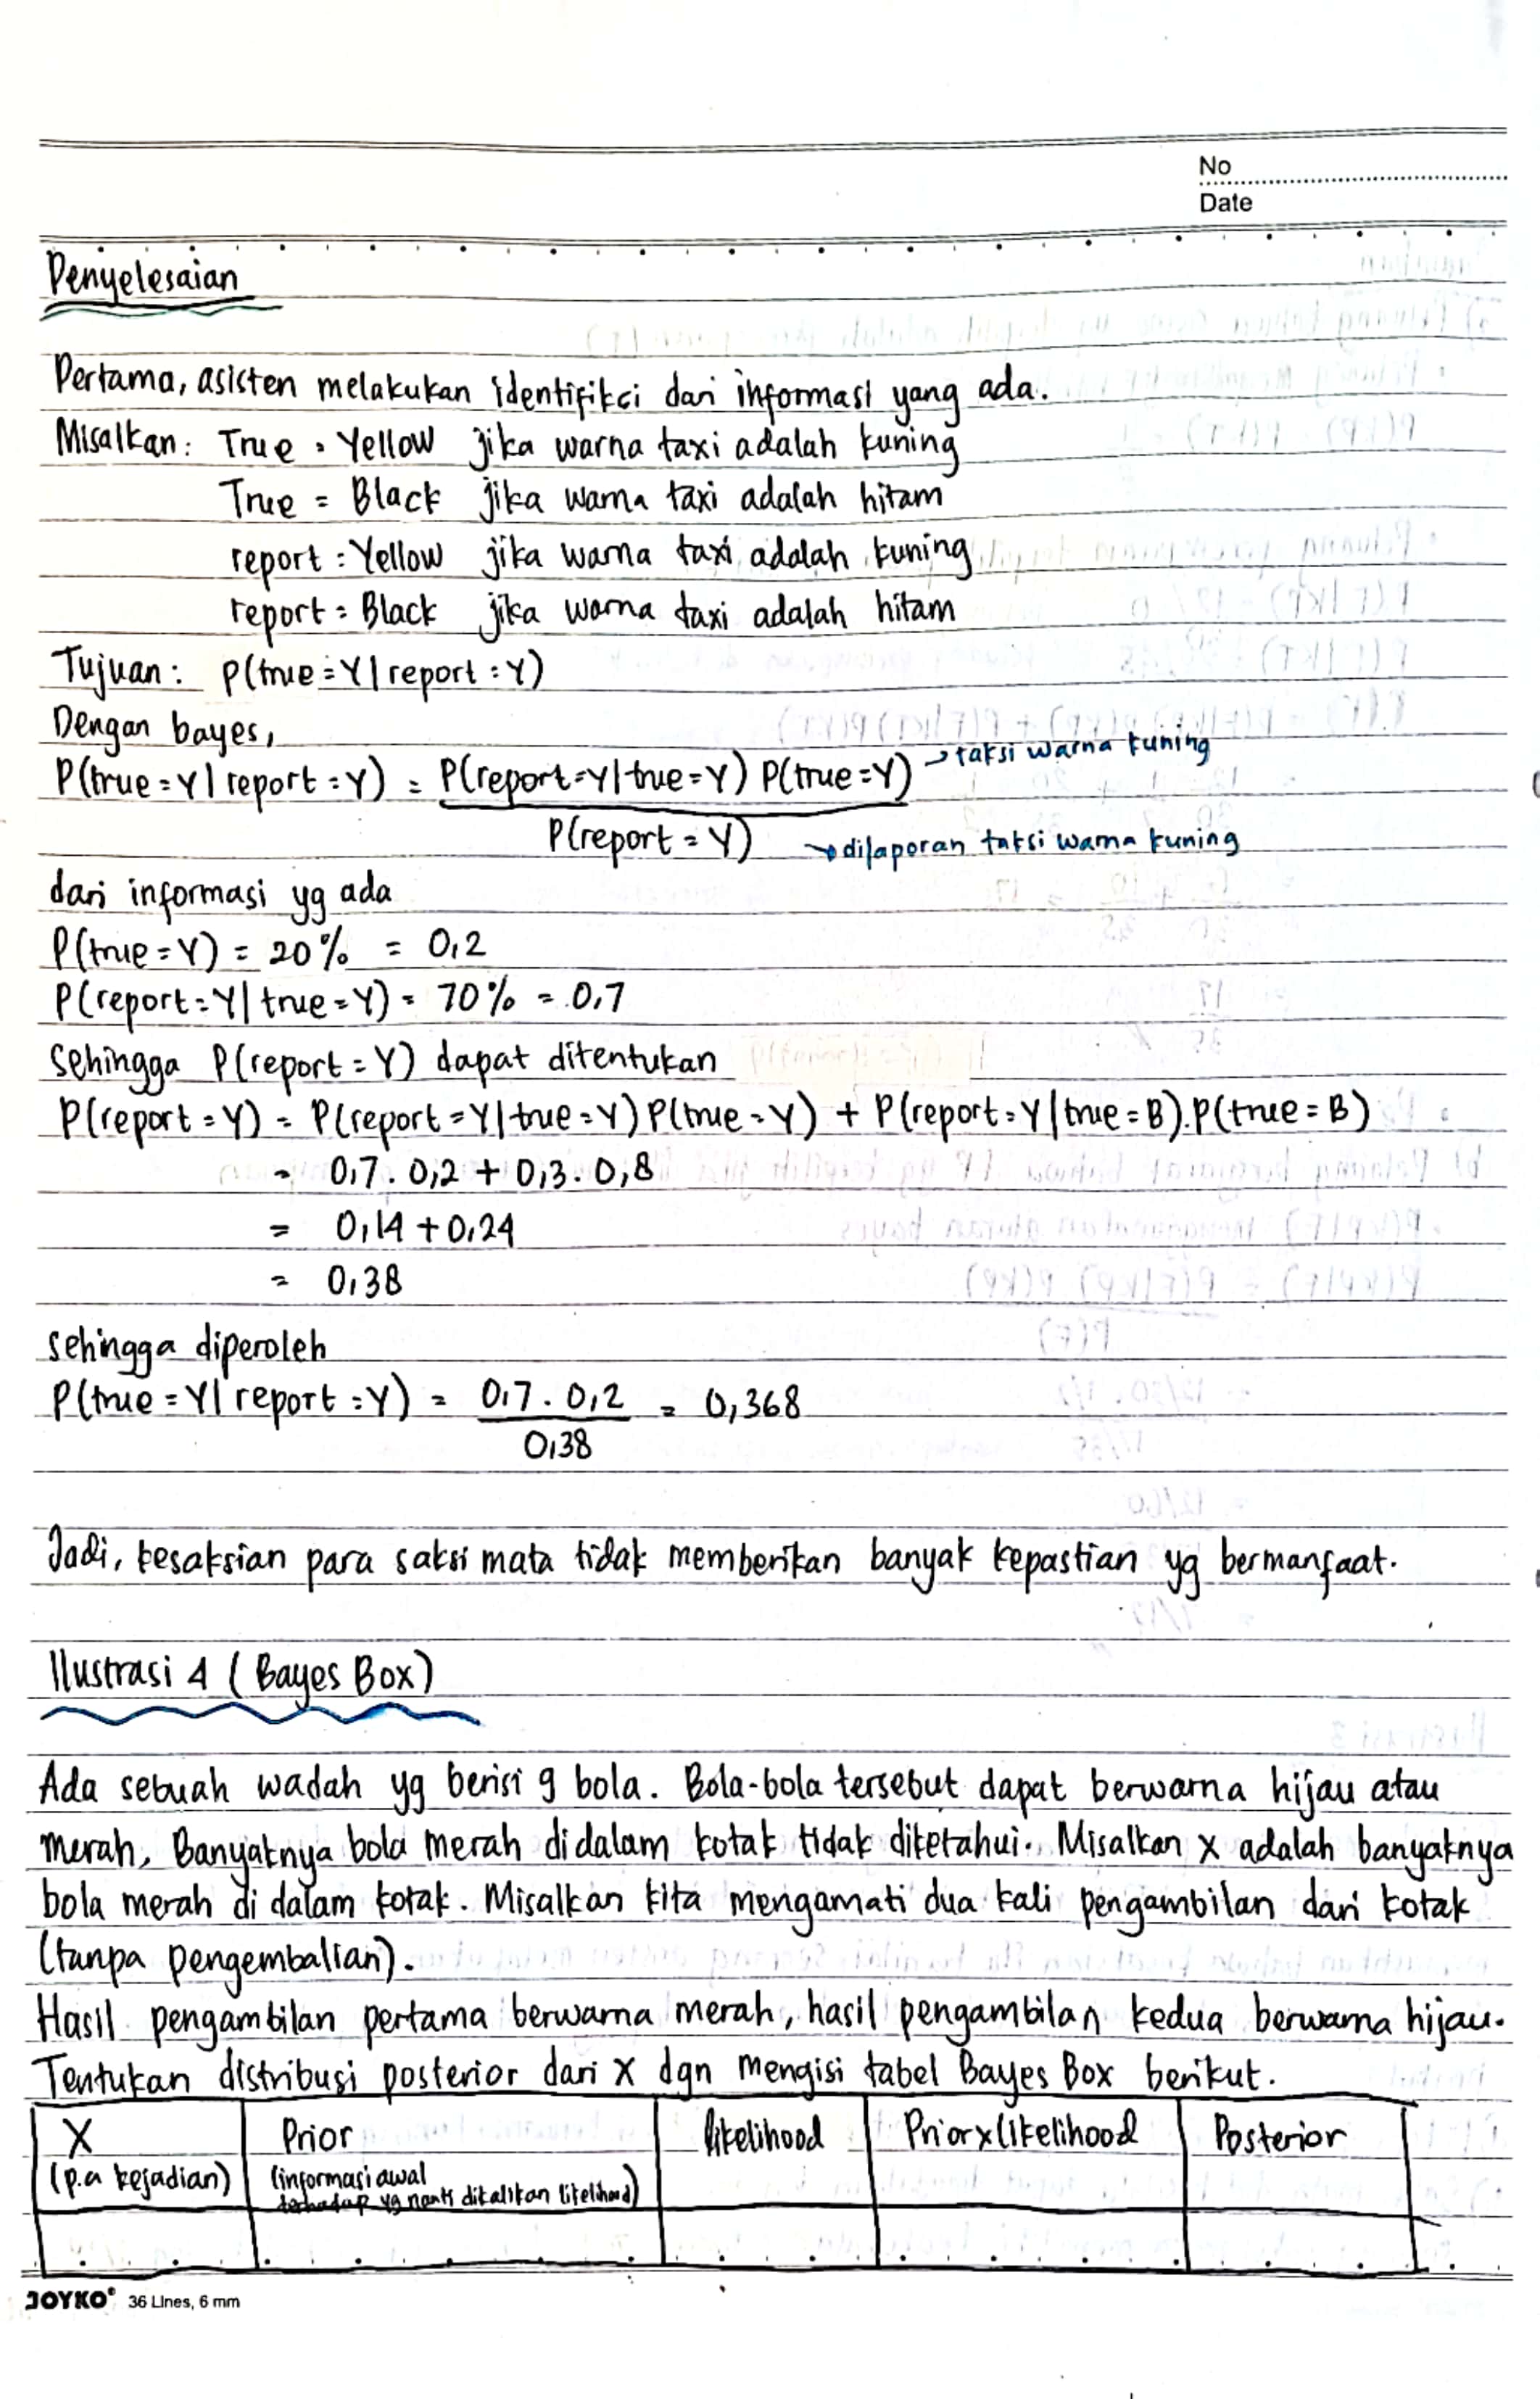 No
Date
Penyelesaian
Pertama, asisten melakukan identifikci dari informasi yang ada.
Misalkan: True = Yellow jika warna taxi adalah kuning
True = Black jika warna taxi adalah hitam
report = Yellow jika warna taxi adalah kuning
report = Black jika warna taxi adalah hitam
Tujuan: P(true=Y|report=Y)
Dengan bayes,
P(true=Y|report=Y) = P(report=Y|true=Y) P(true=Y) → taksi warna kuning
P(report=Y) → dilaporan taksi warna kuning
dari informasi yg ada
P(true=Y) = 20% = 0,2
P(report=Y|true=Y) = 70% = 0,7
sehingga P(report=Y) dapat ditentukan
P(report=Y) = P(report=Y|true=Y) P(true=Y) + P(report=Y|true=B).P(true=B)
= 0,7. 0,2 + 0,3. 0,8
= 0,14 + 0,24
= 0,38
sehingga diperoleh
P(true=Y|report=Y) = 0,7 . 0,2 = 0,368
0,38
Jadi, kesaksian para saksi mata tidak memberikan banyak kepastian yg bermanfaat.
Ilustrasi 4 (Bayes Box)
Ada sebuah wadah yg berisi 9 bola. Bola-bola tersebut dapat berwarna hijau atau
merah, Banyaknya bola merah didalam kotak tidak diketahui. Misalkan x adalah banyaknya
bola merah di dalam kotak. Misalkan kita mengamati dua kali pengambilan dari kotak
(tanpa pengembalian).
Hasil pengambilan pertama berwarna merah, hasil pengambilan kedua berwarna hijau.
Tentukan distribusi posterior dari x dgn mengisi tabel Bayes Box berikut.
X Prior likelihood Prior x likelihood Posterior
(p.a kejadian) (informasi awal
terhadap yg nanti dikalikan likelihood)
JOYKO® 36 Lines, 6 mm